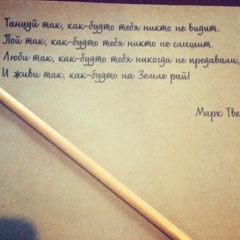 Танцуй так, как-будто тебя никто не видит.
Пой так, как-будто тебя никто не слышит.
Люби так, как-будто тебя никогда не предавали,
И живи так, как-будто на Земле рай!
Марк Тве